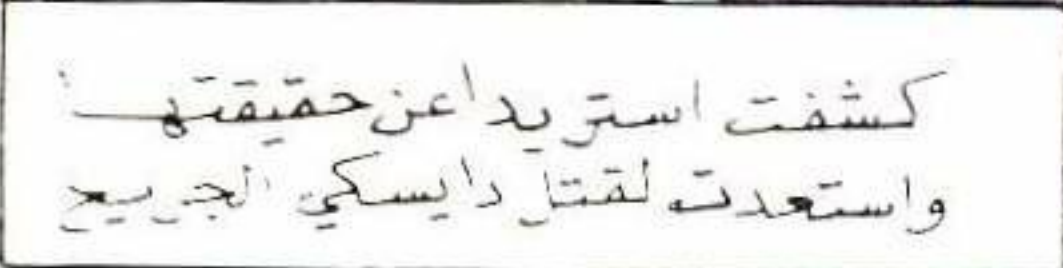 كشفت استريدا عن حقيقتها
واستعدت لقتل دايسكي الجريح